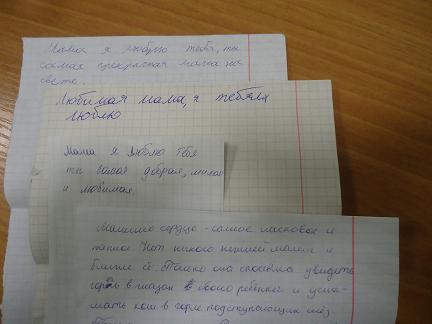 Мама я люблю тебя, ты
самая прекрасная мама на
свете.
Любимая мама, я тебя
люблю
Мама я люблю тебя
ты самая добрая, милая
и любимая.
Мамино сердце - самое ласковое и
Нет никого нежней мамы и
ближе её. Только она способна увидеть
в глазах своего ребенка и
ком в горле подступающих слёз.